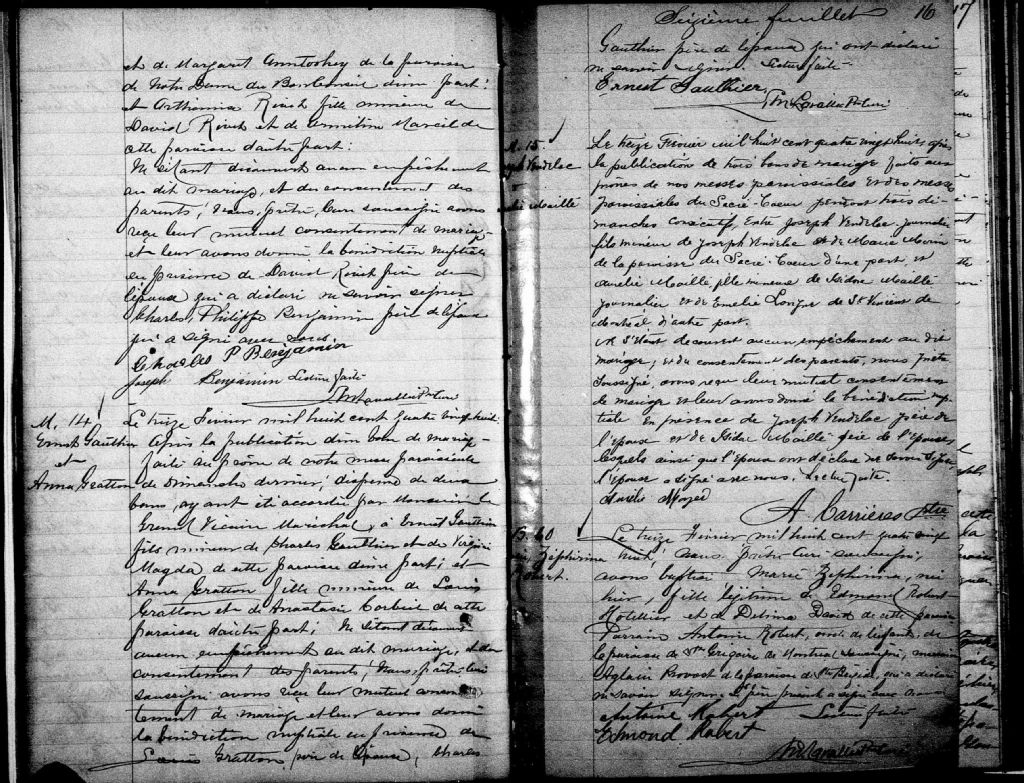 et de Margaret de la paroisse
de Notre Dame du Bonsecours d'une part;
et fille mineure de
David et de Marcil de
cette paroisse d'autre part:
Ne s'étant découvert aucun empêchement
au dit mariage, et du consentement des
parents; Nous, prêtre, curé soussigné avons
reçu leur mutuel consentement de mariage
et leur avons donné la bénédiction nuptiale
en présence de David père de
l'épouse qui a déclaré ne savoir signer
Charles, Philippe Benjamin père de l'époux
qui a signé avec nous
Charles P Benjamin
Joseph Benjamin Lecture faite
Lavallée Ptre curé
M. 14
Ernest Gauthier
et
Anna Gratton
Le treize Février mil huit cent quatre vingt huit
après la publication d'un ban de mariage
faite au prône de notre messe paroissiale
de Dimanche dernier; dispense de deux
bans, ayant été accordée par Monsieur le
Grand Vicaire Maréchal, à Ernest Gauthier
fils mineur de Charles Gauthier et de Virginie
Magda de cette paroisse d'une part; et
Anna Gratton fille mineure de Louis
Gratton et de Anastasie Corbeil de cette
paroisse d'autre part; Ne s'étant découvert
aucun empêchement au dit mariage, et du
consentement des parents; Nous, prêtre curé
soussigné avons reçu leur mutuel consen-
tement de mariage et leur avons donné
la bénédiction nuptiale en présence de
Louis Gratton, père de l'épouse, Charles
Seizième feuillet 16
17
Gauthier père de l'époux qui ont déclaré
ne savoir signer Lecture faite
Ernest Gauthier
Lavallée Ptre curé
M. 15
Joseph Vendelac
Aurélie Maillé
Le treize Février mil huit cent quatre vingt huit après
la publication de trois bans de mariage faite aux
prônes de nos messes paroissiales et des messes
paroissiales du Sacré-Coeur pendant trois di-
manches consécutifs, Entre Joseph Vendelac journalier
fils mineur de Joseph Vendelac et de Marie Morin
de la paroisse du Sacré-Coeur d'une part, et
Aurélie Maillé, fille mineure de Isidore Maillé
journalier et de Emélie de St Vincent de
Montréal d'autre part.
Ne S'étant découvert aucun empêchement au dit
mariage; et du consentement des parents, nous prêtre
soussigné, avons reçu leur mutuel consentement
de mariage et leur avons donné la bénédiction nup-
tiale En présence de Joseph Vendelac père de
l'époux et de Isidore Maillé père de l'épouse,
lesquels ainsi que l'époux ont déclaré ne savoir signer
l'épouse a signé avec nous. Lecture faite.
A Carrières ptre
B. 40
Zéphirina
Robert.
Le treize Février mil huit cent quatre vingt
huit, nous, prêtre curé soussigné,
avons baptisé Marie Zéphirina, née
hier, fille légitime de Edmond Robert
Hôtellier et de Delima David de cette paroisse
Parrain Antoine Robert, oncle de l'enfant, de
la paroisse de St Grégoire de Montréal soussigné, marraine
Aglaée Provost de la paroisse de Ste Brigide, qui a déclaré
ne savoir signer. Le père présent a signé avec nous
Antoine Robert Lecture faite
Edmond Robert
Lavallée Ptre curé